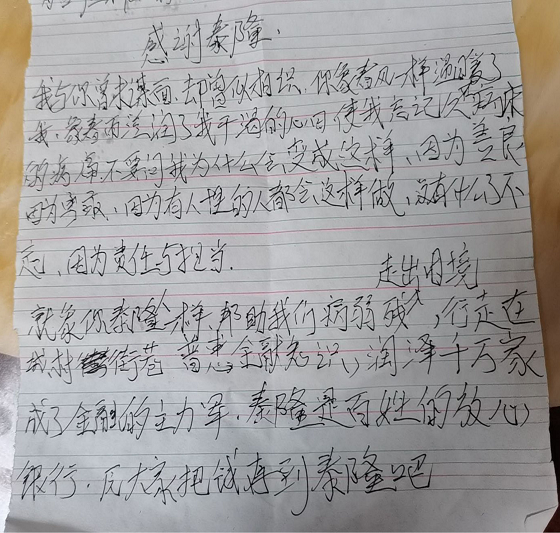 感谢泰隆.
我与你曾未谋面、却曾似相识、你象春风一样温暖了
我、象春雨滋润了我干渴的心田使我忘记了病床
的病痛.不要问我为什么会变成这样、因为善良
因为勇敢、因为有人性的人都会这样做、没有什么了不
起、因为责任与担当.
走出困境
就象你泰隆一样、帮助我们病弱残人,行走在
农村街巷 普惠金融知识,润泽千万家
成了金融的主力军、泰隆是百姓的放心
银行.大家把钱存到泰隆吧